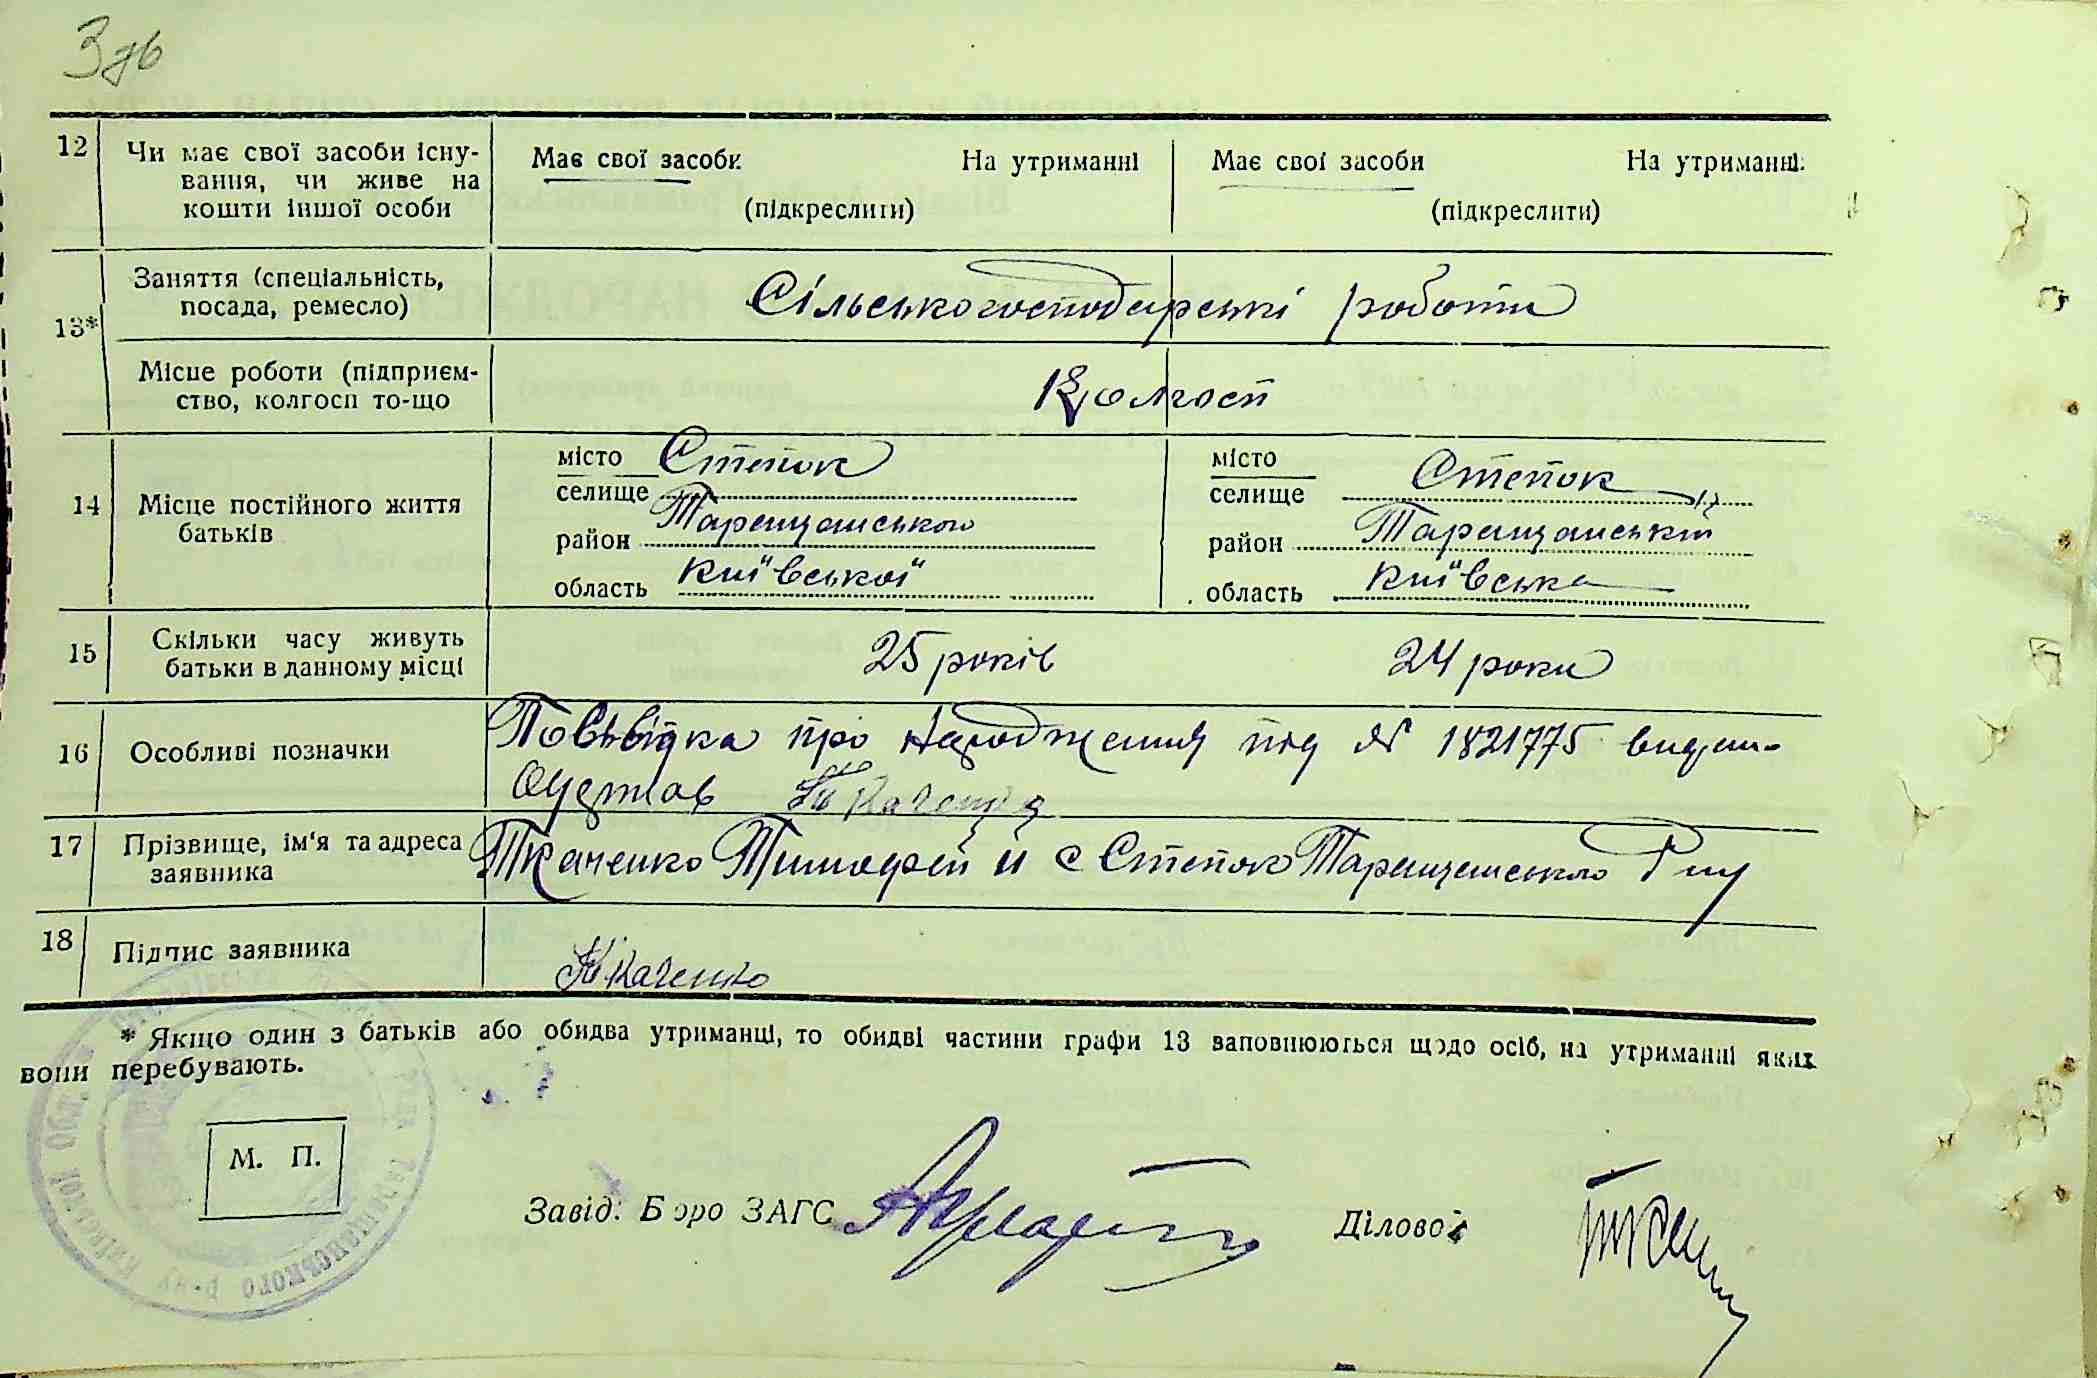 3 зв
12 Чи має свої засоби існу- Має свої засоби На утриманні Має свої засоби На утриманні
вання, чи живе на
кошти іншої особи (підкреслити) (підкреслити)
13* Заняття (спеціальність,
посада, ремесло) Сільськогосподарські роботи
Місце роботи (підприєм-
ство, колгосп то-що Колгосп
14 Місце постійного життя
батьків
місто Степок місто Степок
селище селище
район Таращанського район Таращанський
область Київської область Київська
15 Скільки часу живуть
батьки в данному місці 25 років 24 роки
16 Особливі позначки Посьвідка про народження під № 1821775 видан-
Одержав Ткаченко
17 Прізвище, ім'я та адреса
заявника Ткаченко Тимофей Й с Степок Таращанського Р ну
18 Підпис заявника Ткаченко
* Якщо один з батьків або обидва утриманці, то обидві частини графи 13 заповнюються щодо осіб, на утриманні яких
вони перебувають.
М. П.
Завід. Бюро ЗАГС Діловод
Таращанського р-ну Київської обл.